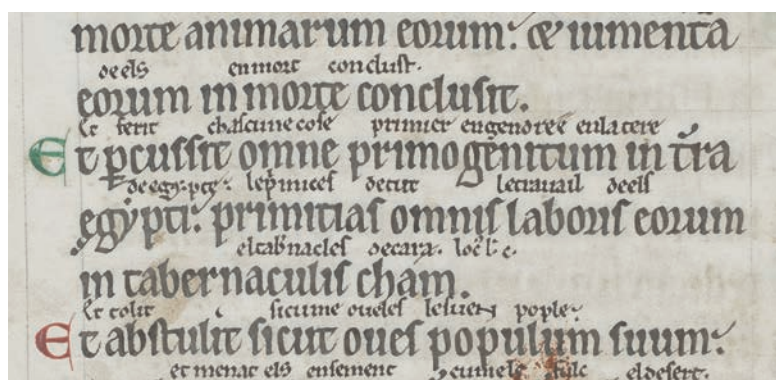 morte animarum eorum: & iumenta
de els en mort conclust.
eorum in morte conclusit.
Et ferit chascune cose primier engendreé en la tere
Et p̄cussit omne primogenitum in t̄ra
de egypte: le p̄mices de tut le trauail de els
egypti: primitias omnis laboris eorum
el tab̄nacles de cam.
in tabernaculis cham.
Et tolit sicume oueles sen pople.
Et abstulit sicut oues populum suum:
et menat els ensement cume fulc el desert.